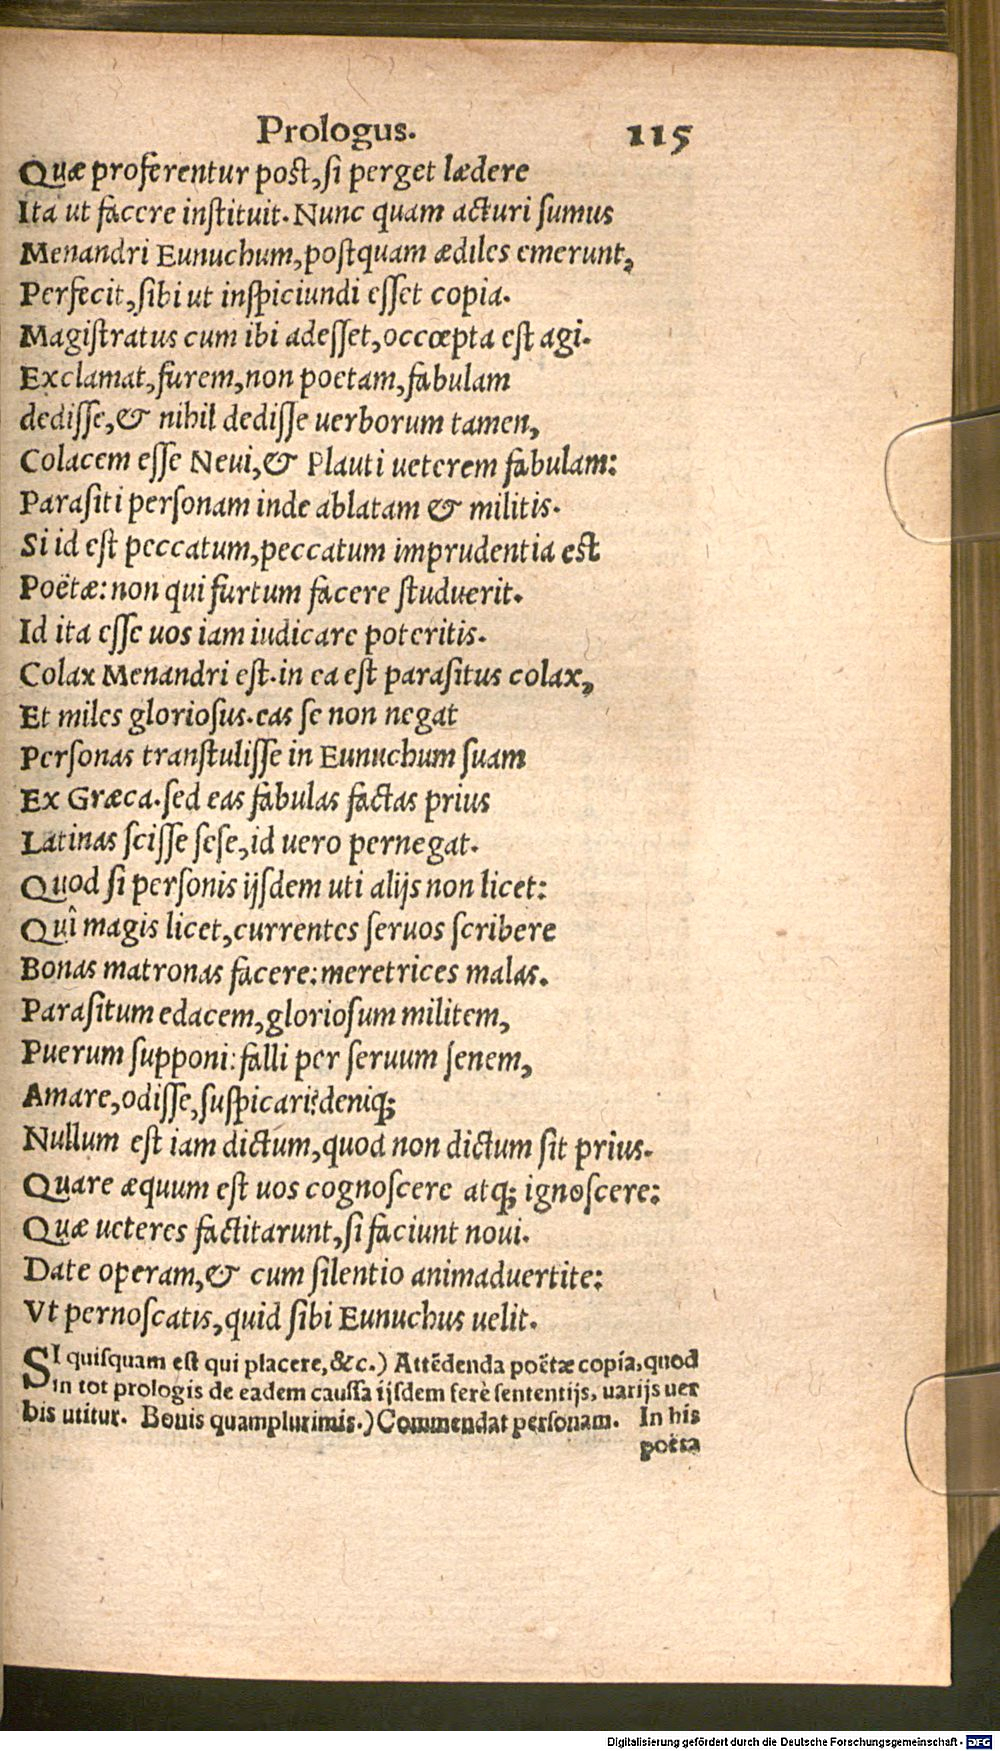 Prologus. 115
Quæ proferentur post, si perget lædere
Ita ut facere instituit. Nunc quam acturi sumus
Menandri Eunuchum, postquam ædiles emerunt,
Perfecit, sibi ut inspiciundi esset copia.
Magistratus cum ibi adesset, occœpta est agi.
Exclamat, furem, non poetam, fabulam
dedisse, & nihil dedisse uerborum tamen,
Colacem esse Neui, & Plauti ueterem fabulam:
Parasiti personam inde ablatam & militis.
Si id est peccatum, peccatum imprudentia est
Poëtæ: non qui furtum facere studuerit.
Id ita esse uos iam iudicare poteritis.
Colax Menandri est. in ea est parasitus colax,
Et miles gloriosus. eas se non negat
Personas transtulisse in Eunuchum suam
Ex Græca. sed eas fabulas factas prius
Latinas scisse sese, id uero pernegat.
Quod si personis ijsdem uti alijs non licet:
Quî magis licet, currentes seruos scribere
Bonas matronas facere: meretrices malas.
Parasitum edacem, gloriosum militem,
Puerum supponi: falli per seruum senem,
Amare, odisse, suspicari? deniq;
Nullum est iam dictum, quod non dictum sit prius.
Quare æquum est uos cognoscere atq; ignoscere:
Quæ ueteres factitarunt, si faciunt noui.
Date operam, & cum silentio animaduertite:
Vt pernoscatis, quid sibi Eunuchus uelit.
SI quisquam est qui placere, &c.) Attēdenda poëtæ copia, quod
in tot prologis de eadem caussa ijsdem ferè sententijs, uarijs uer
bis utitur. Bonis quamplurimis.) Commendat personam. In his
poëta
Digitalisierung gefördert durch die Deutsche Forschungsgemeinschaft - DFG